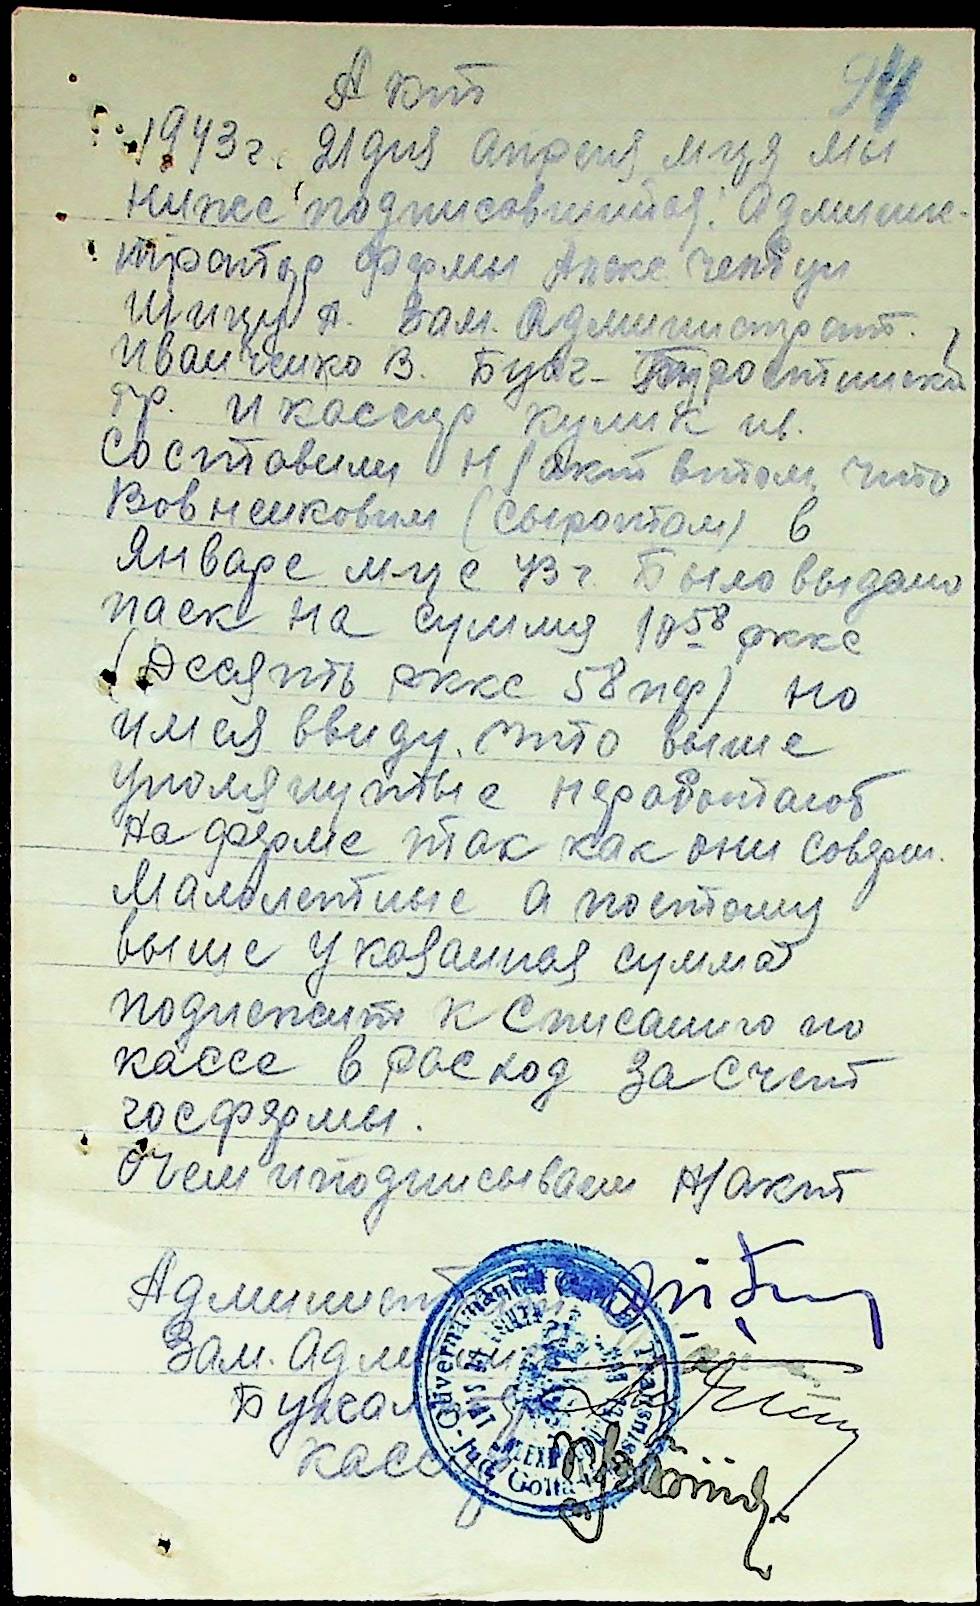 94
Акт
1943 г. 21 дня Апреля м-ця мы
ниже подписовшийся: Админис-
тратор фермы Алекс
Шицу А. Зам. Администрат.
Иванченко В. Бухг-
гр. и кассир Кулик ив.
составили н/акт втом, что
Вовненковим (сыротам) в
Январе м-це 43 г. Было выдано
паек на сумму 10 58 рккс
(Десять рккс 58 пф) но
имея ввиду, что выше
упомянутые неработают
на ферме так как они соверш.
малолетные а поетому
выше указанная сумма
подлежит к списанию по
кассе в расход за счет
госфермы.
Очем иподписываем н/акт
Админист
Зам. Адми
Бухгал
Касс
Guvernământul Transnis
Jud. Golta